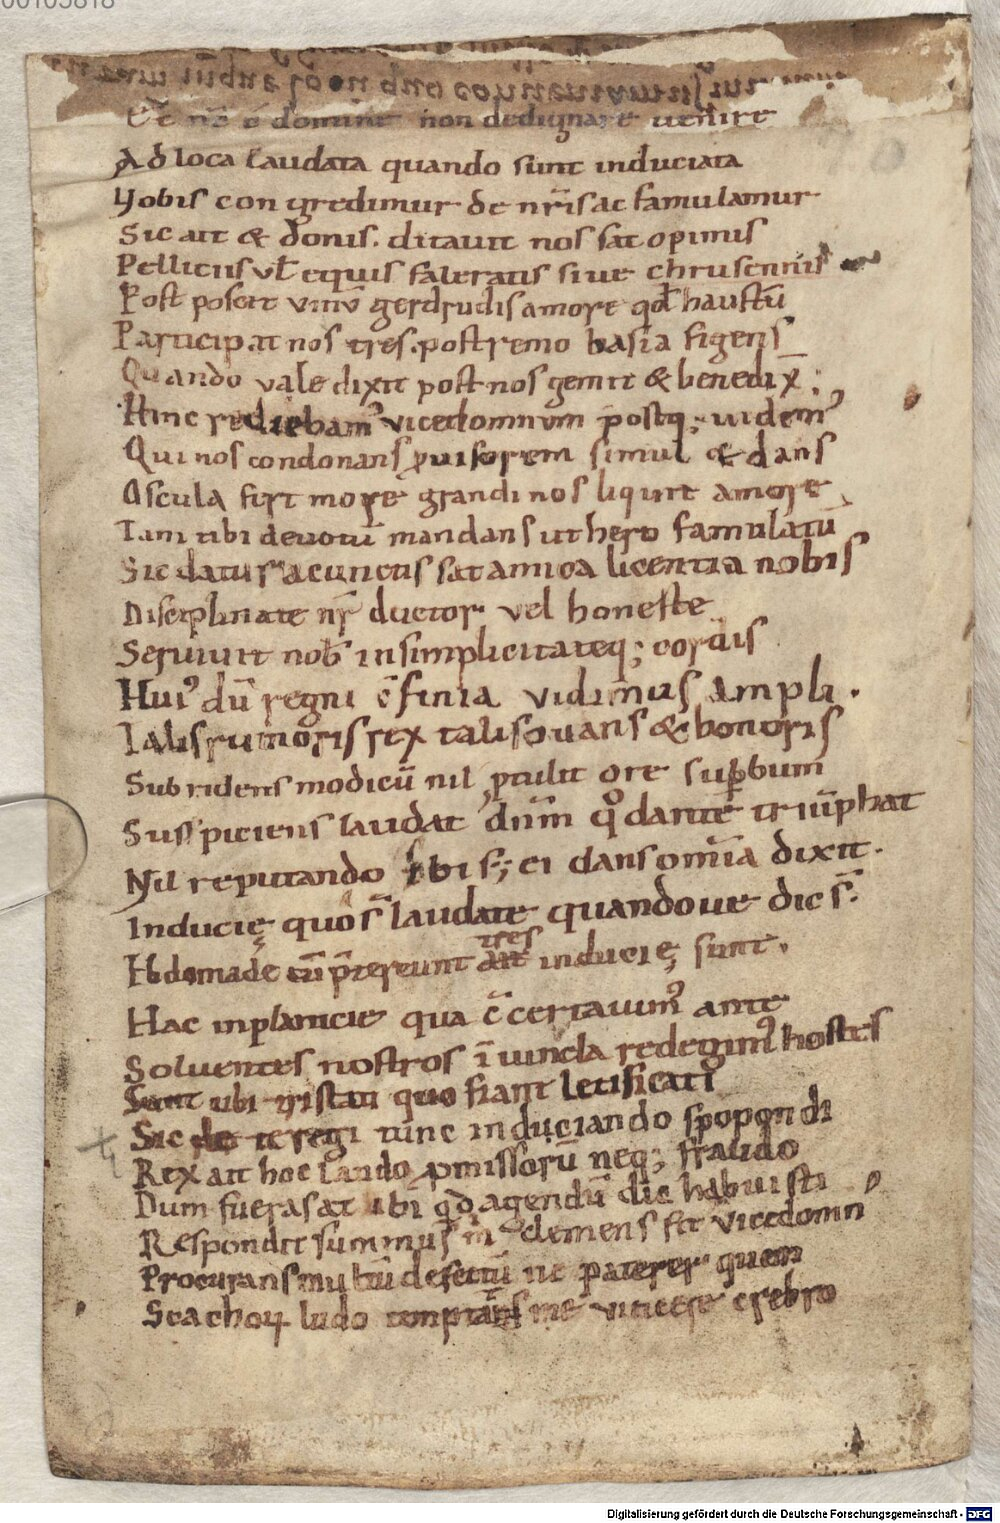 00103818
Et nr̄ ē domine non dedignare uenire
Ad loca laudata quando sunt induciata
Nobis congredimur de nr̄is ac famulamur
Sic ait & donis. ditauit nos sat opimis
Pelliciis vł equis faleratis siue chrusennis
Post poscit vinū gerdrudis amore qđ haustū
Participat nos tres. postremo basia figens
Quando vale dixit post nos gemit & benedix̄;
Hinc rediebam᾿ vicedomnum postq; uidem᾿
Qui nos condonans ꝓuisorem simul & dans
Oscula fert more grandi nos liquit amore
Tam tibi deuotū mandans ut hero famulatū
Sic datur a cunctis sat amica licentia nobis
Disciplinate nr̄ ductor vel honeste
Seruiuit nob̄ in simplicitateq; cordis
Hui᾿ dū regni c̄finia vidimus ampli.
Talis rumoris rex talis ouans & honoris
Subridens modicū nil ꝓtulit ore suꝑbum
Suspiciens laudat dn̄m qđ dante triūphat
Nil reputando sibi s; ei dans omīa dixit.
Induciȩ quo s̄ laudate quandoue dic s̄.
Ebdomade cū p̄tereunt tres induciȩ sunt.
Hac in planicie qua c̄certauim᾿ ante
Soluentes nostros ī uincla redegim᾿ hostes
Sunt ubi tristati quo fiant letificati
Sic de te regi tunc induciando spopondi
Rex ait hoc laudo ꝓmissorū neq; fraudo
Dum fueras at ibi qđ agendū dic habuisti
Respondit summus m̄ clemens fit vicedomn᾿
Procurans multū defectū ne paterer quem
Scachoꝝ ludo temptans me vincere crebro
Digitalisierung gefördert durch die Deutsche Forschungsgemeinschaft - DFG